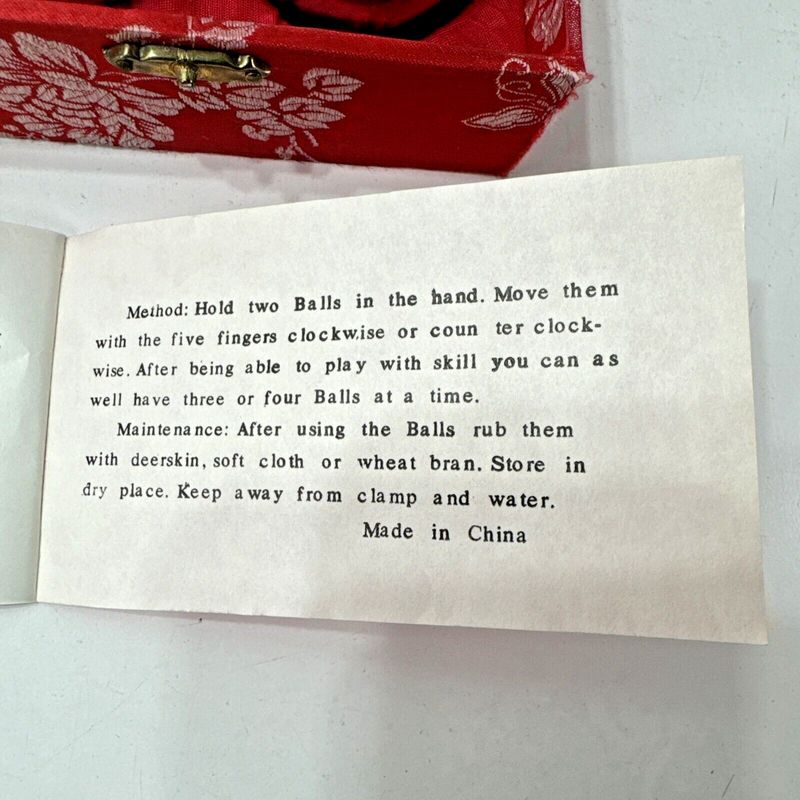 Method: Hold two Balls in the hand. Move them
with the five fingers clockwise or coun ter clock-
wise. After being able to play with skill you can as
well have three or four Balls at a time.
Maintenance: After using the Balls rub them
with deerskin, soft cloth or wheat bran. Store in
dry place. Keep away from clamp and water.
Made in China